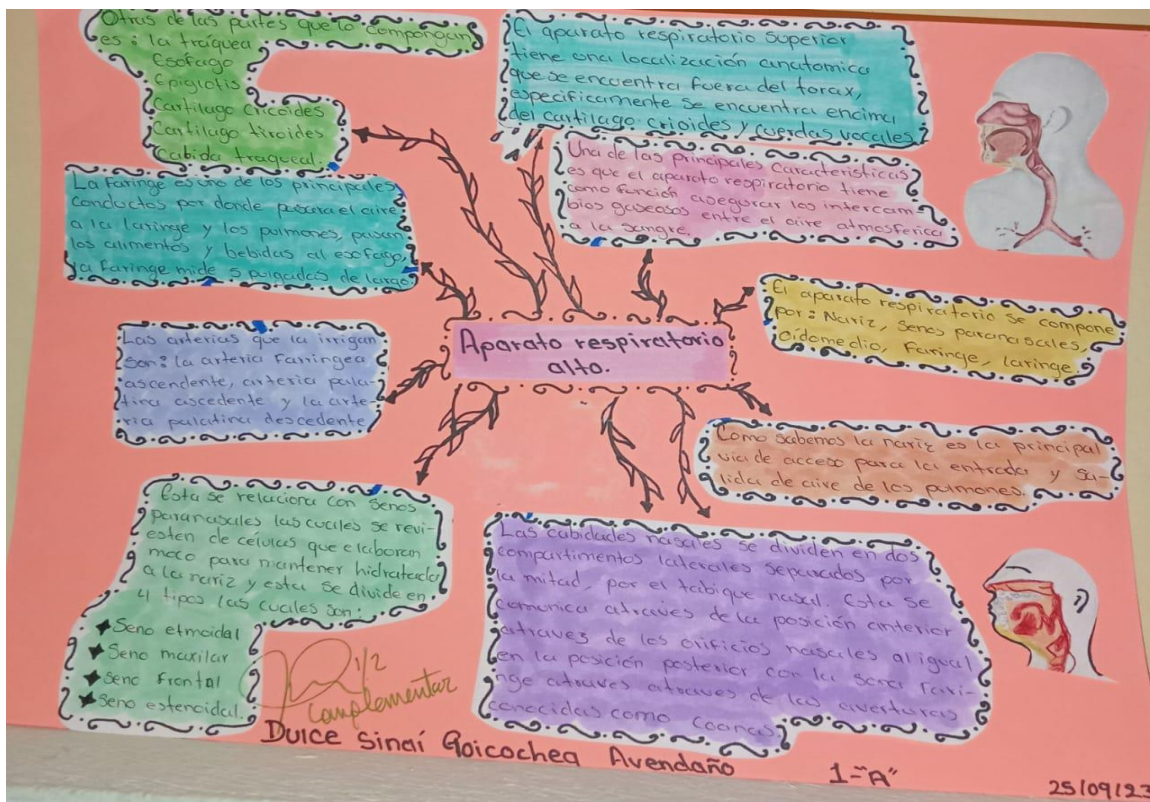 Otras de las partes que lo compongan
es: la tráquea
Esofago
Epiglotis
Cartilago Cricoides
Cartilago tiroides
Cabida traqueal.
El aparato respiratorio superior
tiene una localización anatomica
que se encuentra fuera del torax,
especificamente se encuentra encima
del cartilago crioides y cuerdas vocales.
Una de las principales caracteristicas
es que el aparato respiratorio tiene
como función asegurar los intercam-
bios gaseosos entre el aire atmosferica
a la sangre.
La faringe es uno de los principales
conductos por donde pasara el aire
a la laringe y los pulmones, pasan
los alimentos y bebidas al esofago,
la faringe mide 5 pulgadas de largo.
El aparato respiratorio se compone
por: Nariz, senos paranasales,
oidomedio, faringe, laringe.
Aparato respiratorio
alto.
Las arterias que la irrigan
son: la arteria faringea
ascendente, arteria pala-
tina ascedente y la arte-
ria palatina descedente
Como sabemos la nariz es la principal
via de acceso para la entrada y sa-
lida de aire de los pulmones.
Esta se relaciona con senos
paranasales las cuales se revi-
esten de células que elaboran
moco para mantener hidratada
a la nariz y esta se divide en
4 tipos las cuales son:
Seno etmoidal
Seno maxilar
Seno frontal
Seno estenoidal.
Las cabidades nasales se dividen en dos
compartimentos laterales separados por
la mitad, por el tabique nasal. Esta se
comunica atraves de la posición anterior
atravez de los orificios nasales al igual
en la posición posterior con la
nge atraves atraves de las averturas
conocidas como coonas.
1/2
Complementar
Dulce Sinaí Goicochea Avendaño
1-"A"
25/09/23